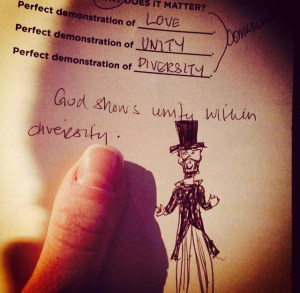 DOES IT MATTER?
Perfect demonstration of LOVE
Perfect demonstration of UNITY
Perfect demonstration of DIVERSITY.
God shows unity within
diversity.